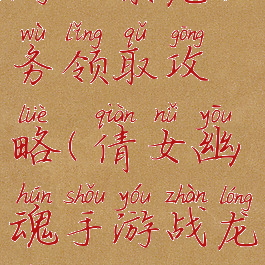 wù lǐng qǔ gōng
务领取攻
lüè qiàn nǚ yōu
略(倩女幽
hún shǒu yóu zhàn lóng
魂手游战龙